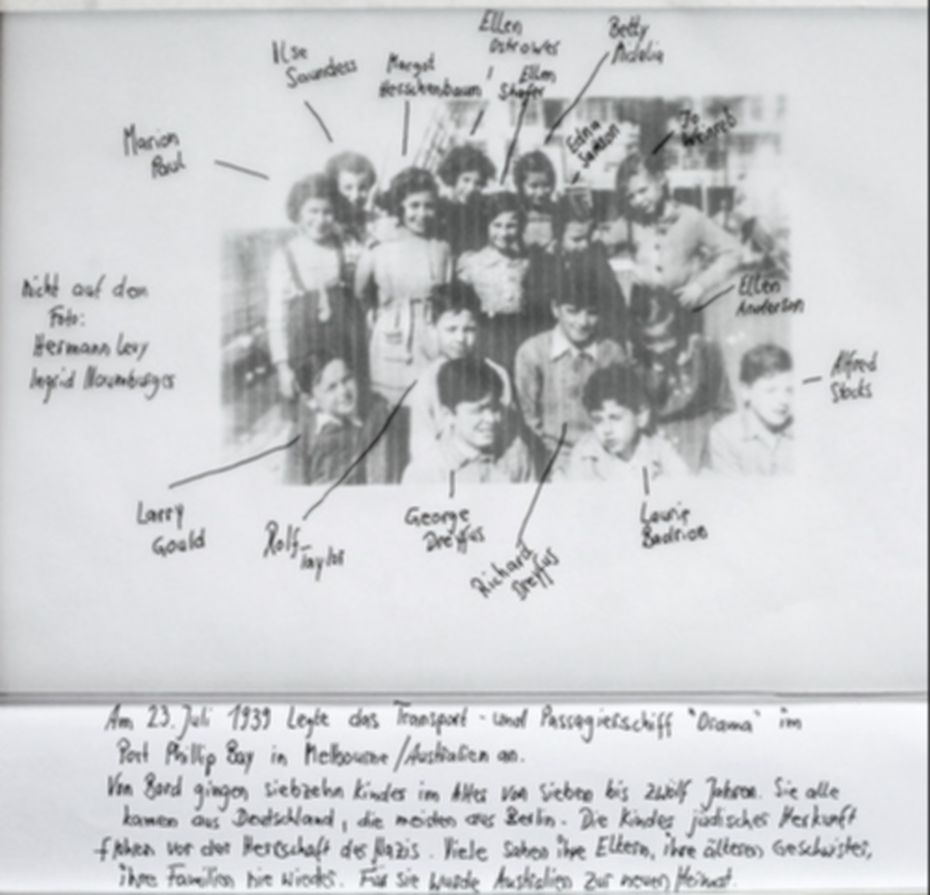 Ilse
Saunders
Margot
Herschenbaum
Ellen
Ostrower
Ellen
Shafer
Betty
Edna
Samson
Jo
Marion
Paul
Nicht auf dem
Foto:
Hermann Levy
Ingrid Naumburger
Ellen
Anderson
Alfred
Stocks
Larry
Gould
Rolf
Taylor
George
Dreyfus
Richard
Dreyfus
Laurie
Badrian
Am 23. Juli 1939 legte das Transport- und Passagierschiff "Orama" im
Port Phillip Bay in Melbourne/Australien an.
Von Bord gingen siebzehn Kinder im Alter von sieben bis zwölf Jahren. Sie alle
kamen aus Deutschland, die meisten aus Berlin. Die Kinder jüdischer Herkunft
flohen vor der Herrschaft der Nazis. Viele sahen ihre Eltern, ihre älteren Geschwister,
ihre Familien nie wieder. Für sie wurde Australien zur neuen Heimat.